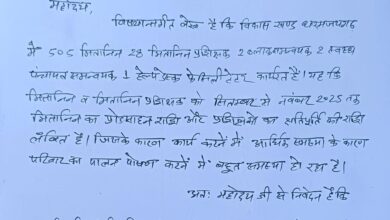 महोदय,
विषयान्तर्गत लेख है कि विकास खण्ड धरमजयगढ़
में 505 मितानिन 28 मितानिन प्रशिक्षक 2 ब्लाकसमन्वयक 2 स्वस्थ
पंचायत समन्वयक 1 हेल्प डेस्क फेसिलीटेटर कार्यरत है। यह कि
मितानिन व मितानिन प्रशिक्षक को सितम्बर से नवंबर 2025 तक
मितानिन का प्रोत्साहन राशि और प्रशिक्षको का क्षतिपूर्ति की राशि
लंबित है। जिसके कारण कार्य करने में आर्थिक समस्या के कारण
परिवार का पालन पोषण करने में बहुत समस्या हो रहा है।
अतः महोदय जी से निवेदन है कि